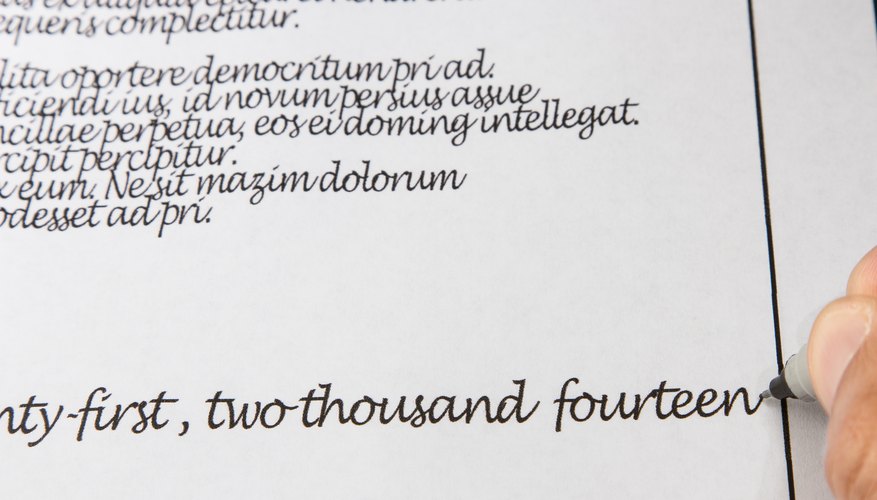 complectitur.
oportere democritum pri ad.
ius, id novum persius assue
perpetua, eos ei doming intellegat.
percipitur.
eum. Ne sit mazim dolorum
ad pri.
nty-first, two thousand fourteen